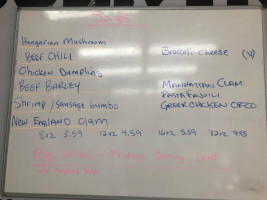 Soups
Hungarian Mushroom
BEEF CHILI
Broccoli Cheese (V)
Chicken Dumpling
BEEF BARLEY
MANHATTAN CLAM
PASTA FAGIOLI
Shrimp/Sausage Gumbo
GREEK CHICKEN ORZO
NEW ENGLAND Clam
8oz 3.59 12oz 4.59 16oz 5.59 32oz 9.95
Egg Salad - During Lent